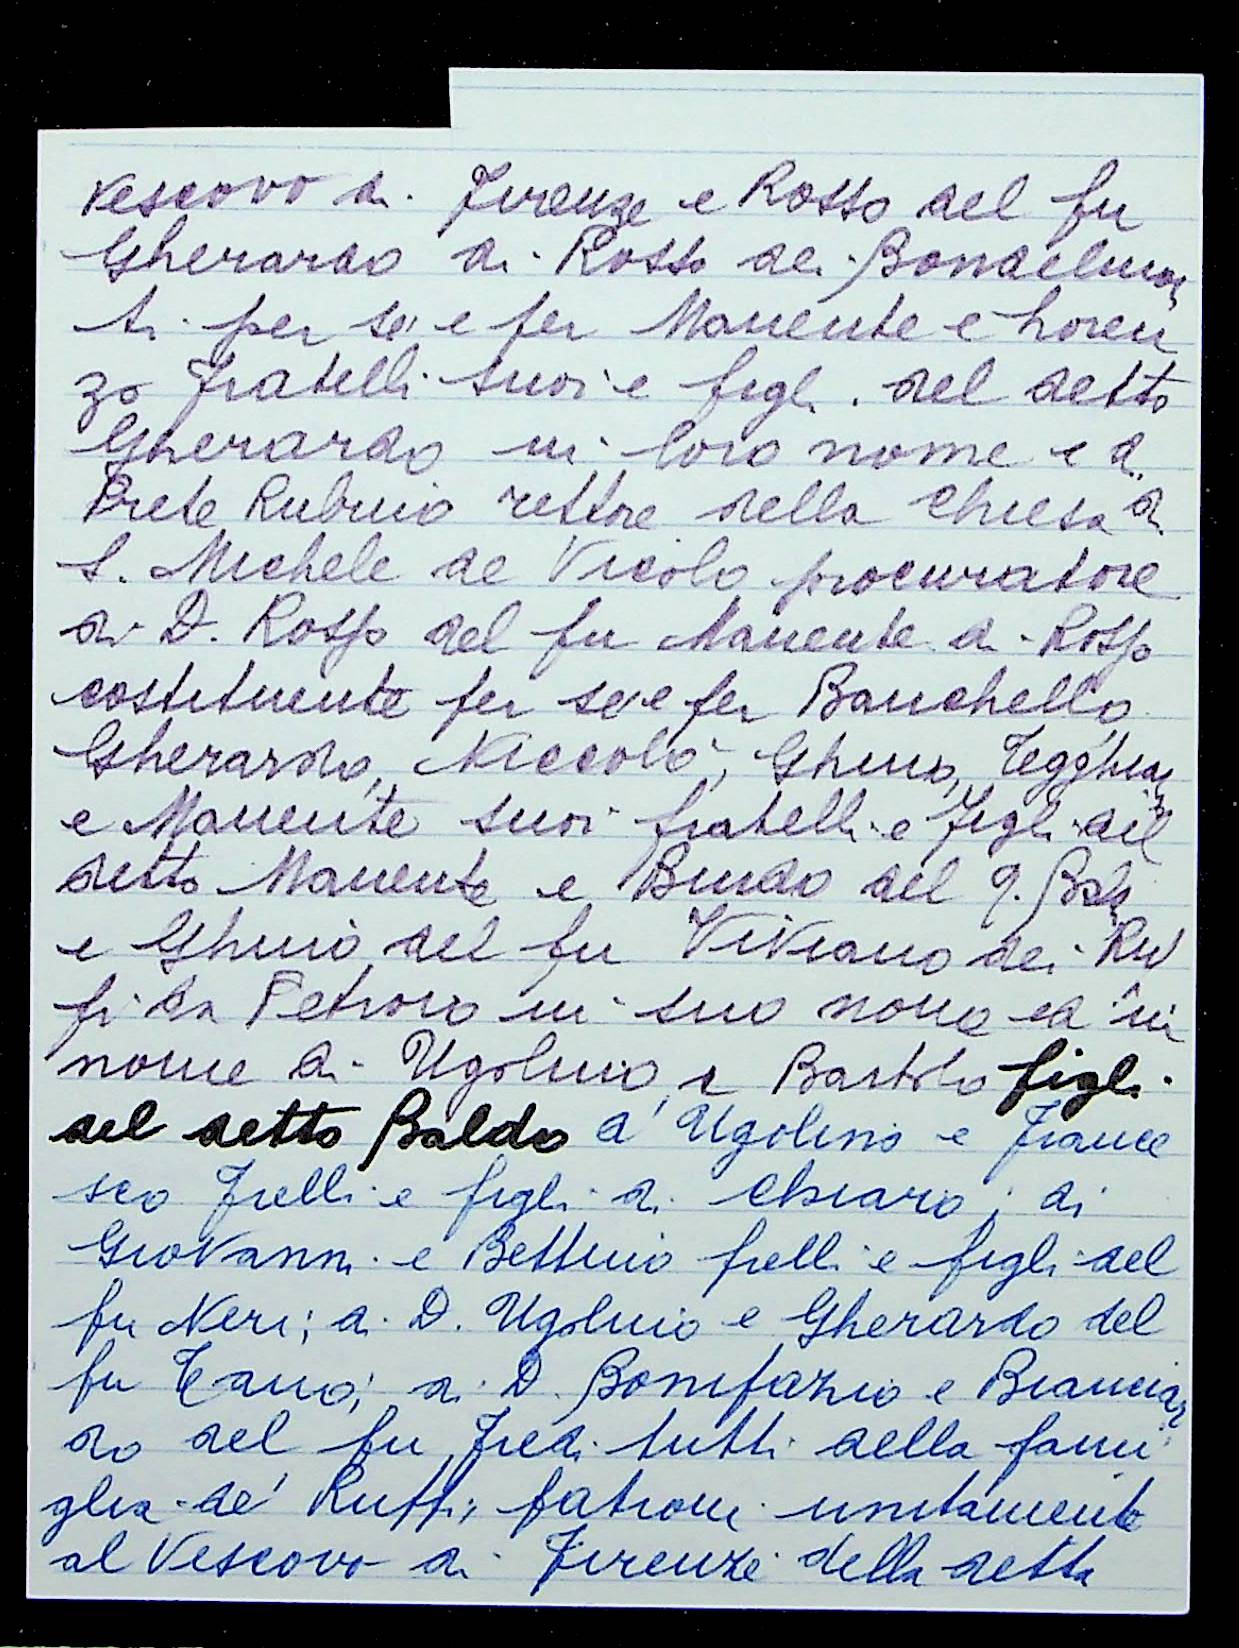 Vescovo di Firenze e Rosso del fu
Gherardo di Rosso dei Bondelmon
ti per se' e per Manente e Loren
zo fratelli suoi e figli del detto
Gherardo in loro nome e di
Prete Rubino rettore della Chiesa di
S. Michele de Vicolo procuratore
di D. Rosso del fu Manente di Rosso
costituente per se' e per Banchello,
Gherardo, Niccolò, Ghino, Tegghia
e Manente suoi fratelli e figli del
detto Manente e Bindo del q. Baldo
e Ghino del fu Viviano dei Ruf
fi da Petroio in suo nome ed in
nome di Ugolino e Bartolo figli
del detto Baldo d'Ugolino e France
sco frelli e figli di Chiaro; di
Giovanni e Bettino frelli e figli del
fu Neri; di D. Ugolino e Gherardo del
fu Tano; di D. Bonifazio e Branciar
do del fu Fredi tutti della fami
glia de' Ruffi, patroni unitamente
al Vescovo di Firenze della detta